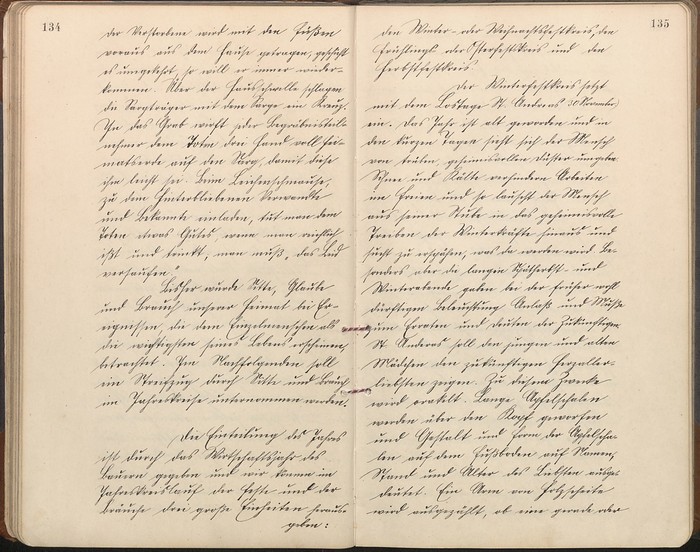 134
der Verstorbene wird mit den Füßen
voraus aus dem Hause getragen, geschieht
es umgekehrt, so will er immer wieder-
kommen. Über der Hausschwelle schlagen
die Sargträger mit dem Sarge ein Kreuz.
In das Grab wirft jeder Begräbnisteil-
nehmer dem Toten drei Hand voll Hei-
matserde auf den Sarg, damit diese
ihm leicht sei. Beim Leichenschmause,
zu dem Hinterbliebenen Verwandte
und Bekannte einladen, tut man dem
Toten etwas Gutes, wenn man reichlich
ißt und trinkt, man muß „das Leid
versaufen".
Bisher wurde Sitte, Glaube
und Brauch unserer Heimat bei Er-
eignissen, die dem Einzelmenschen als
die wichtigsten seines Lebens erscheinen,
betrachtet. Im Nachfolgenden soll
ein Streifzug durch Sitte und Brauch
im Jahreskreise unternommen werden.
Die Einteilung des Jahres
ist durch das Wirtschaftsjahr des
Bauern gegeben und wir können im
Jahreskreislauf der Feste und der
Bräuche drei große Einheiten heraus-
geben:
135
den Winter- oder Weihnachtsfestkreis, den
Frühlings- oder Osterfestkreis und den
Herbstfestkreis.
Der Winterfestkreis setzt
mit dem Lostage St. Andreas 30 November
ein. Das Jahr ist alt geworden und in
den kurzen Tagen sieht sich der Mensch
von trüben, geheimnisvollen Düster umgeben.
Schnee und Kälte verhindern Arbeiten
im Freien und so lauscht der Mensch
aus seiner Stube in das geheimnisvolle
Treiben der Winterkräfte hinaus und
sucht zu erspähen, was da werden wird. Be-
sonders aber die langen Spätherbst- und
Winterabende gaben bei der früher recht
dürftigen Beleuchtung Anlaß und Muße
zum Erraten und deuten der Zukünftigen.
St. Andreas soll den jungen und alten
Mädchen den zukünftigen Herzaller-
liebsten zeigen. Zu diesem Zwecke
wird orakelt. Lange Apfelschalen
werden über den Kopf geworfen
und Gestalt und Form der Apfelscha-
len auf dem Fussboden auf Namen,
Stand und Alter des Liebsten ausge-
deutet. Ein Arm von Holzscheite
wird ausgezählt, ob eine gerade oder